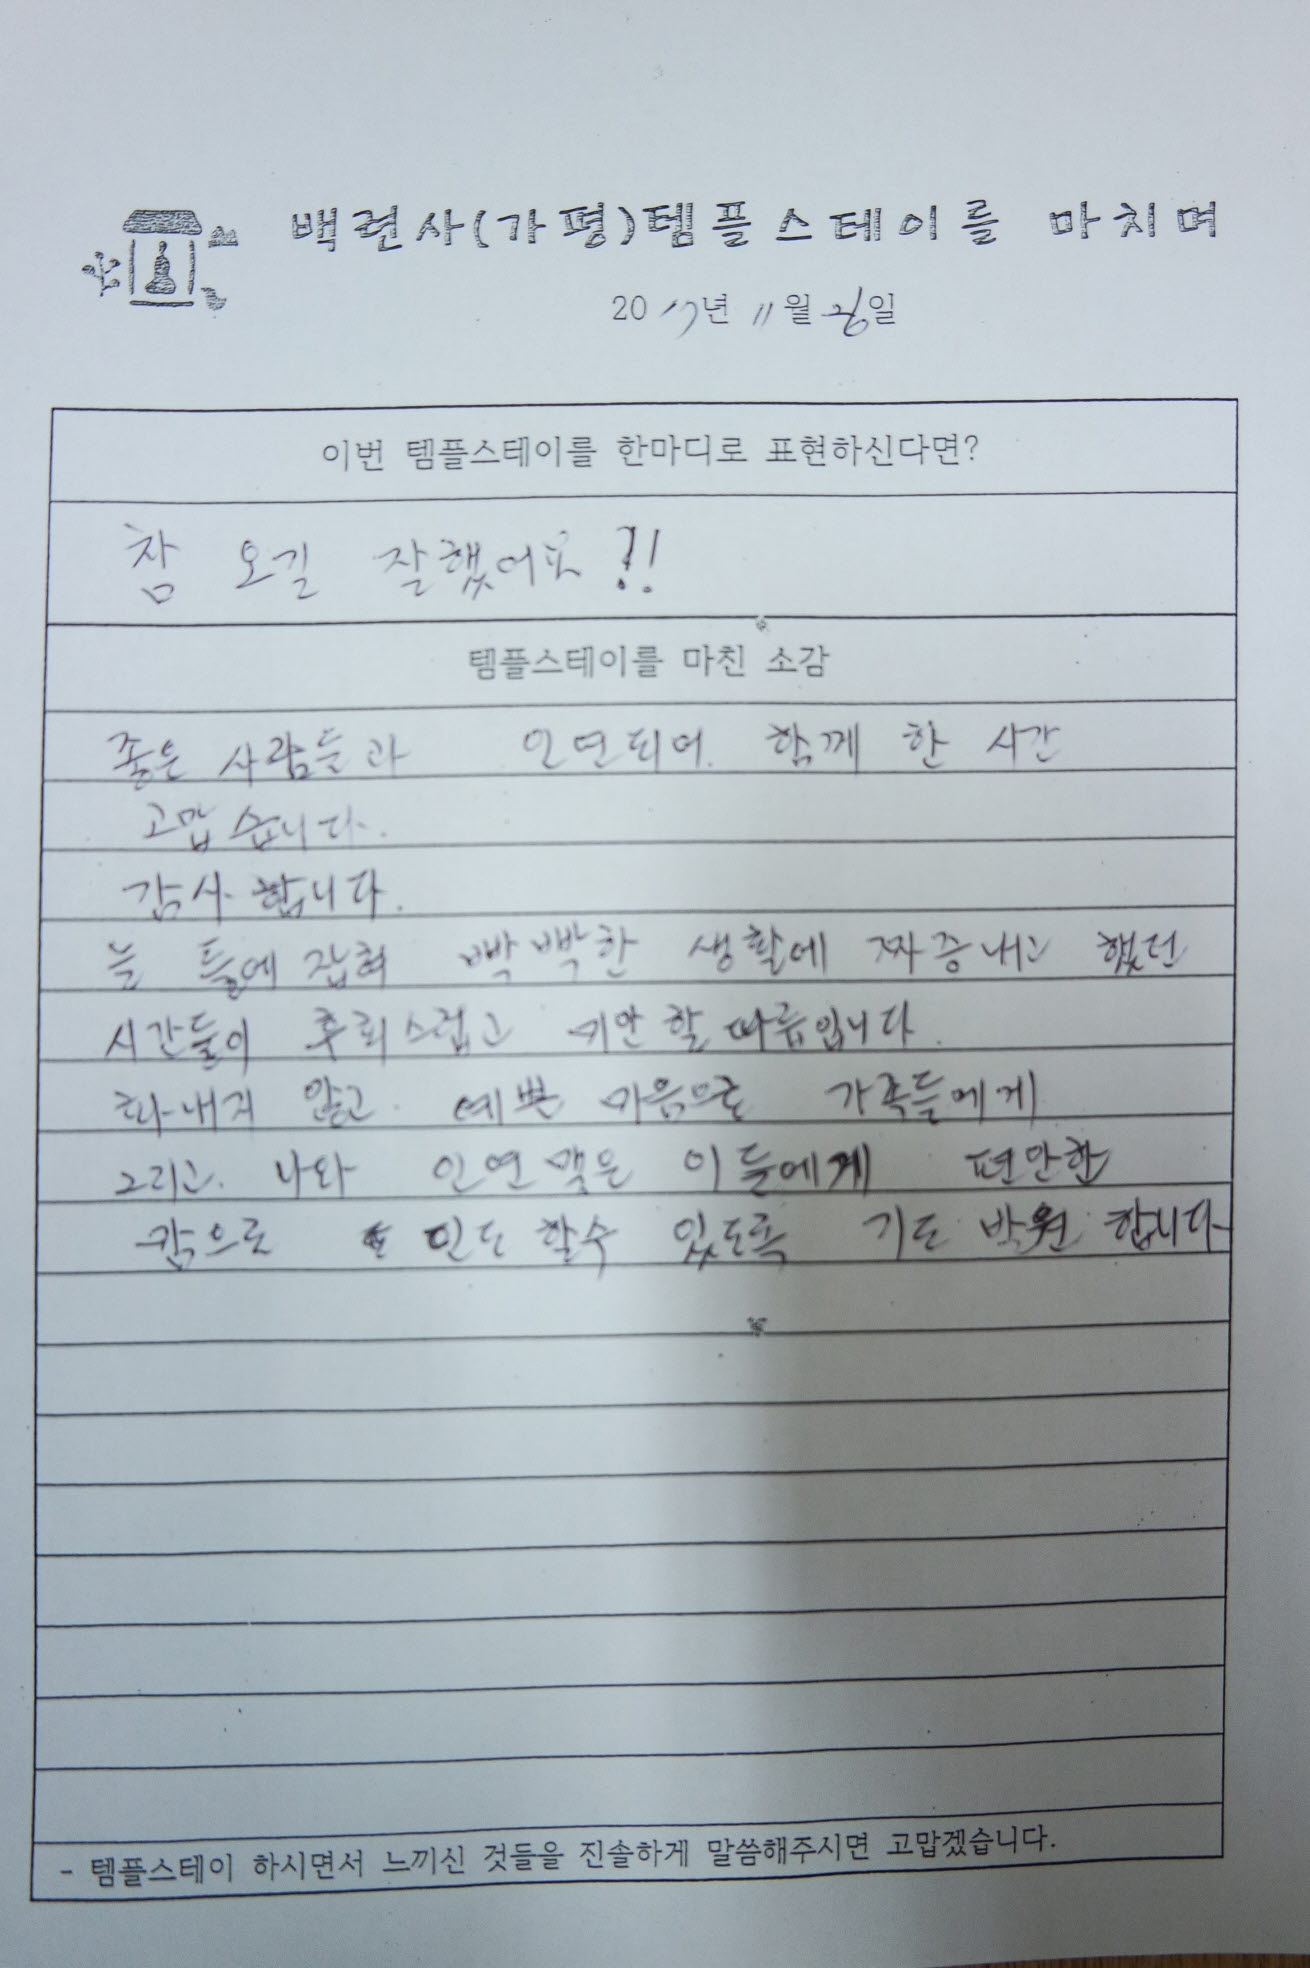 백련사(가평)템플스테이를 마치며
2017년 11월 26일
이번 템플스테이를 한마디로 표현하신다면?
참 오길 잘했어요!!
템플스테이를 마친 소감
좋은 사람들과 인연되어. 함께 한 시간
고맙습니다.
감사합니다.
늘 틀에 잡혀 빡빡한 생활에 짜증내고 했던
시간들이 후회스럽고 미안할 따름입니다.
화내지 않고. 예쁜 마음으로 가족들에게
그리고. 나와 인연맺은 이들에게 편안한
맘으로 인도 할수 있도록 기도 발원 합니다
- 템플스테이 하시면서 느끼신 것들을 진솔하게 말씀해주시면 고맙겠습니다.